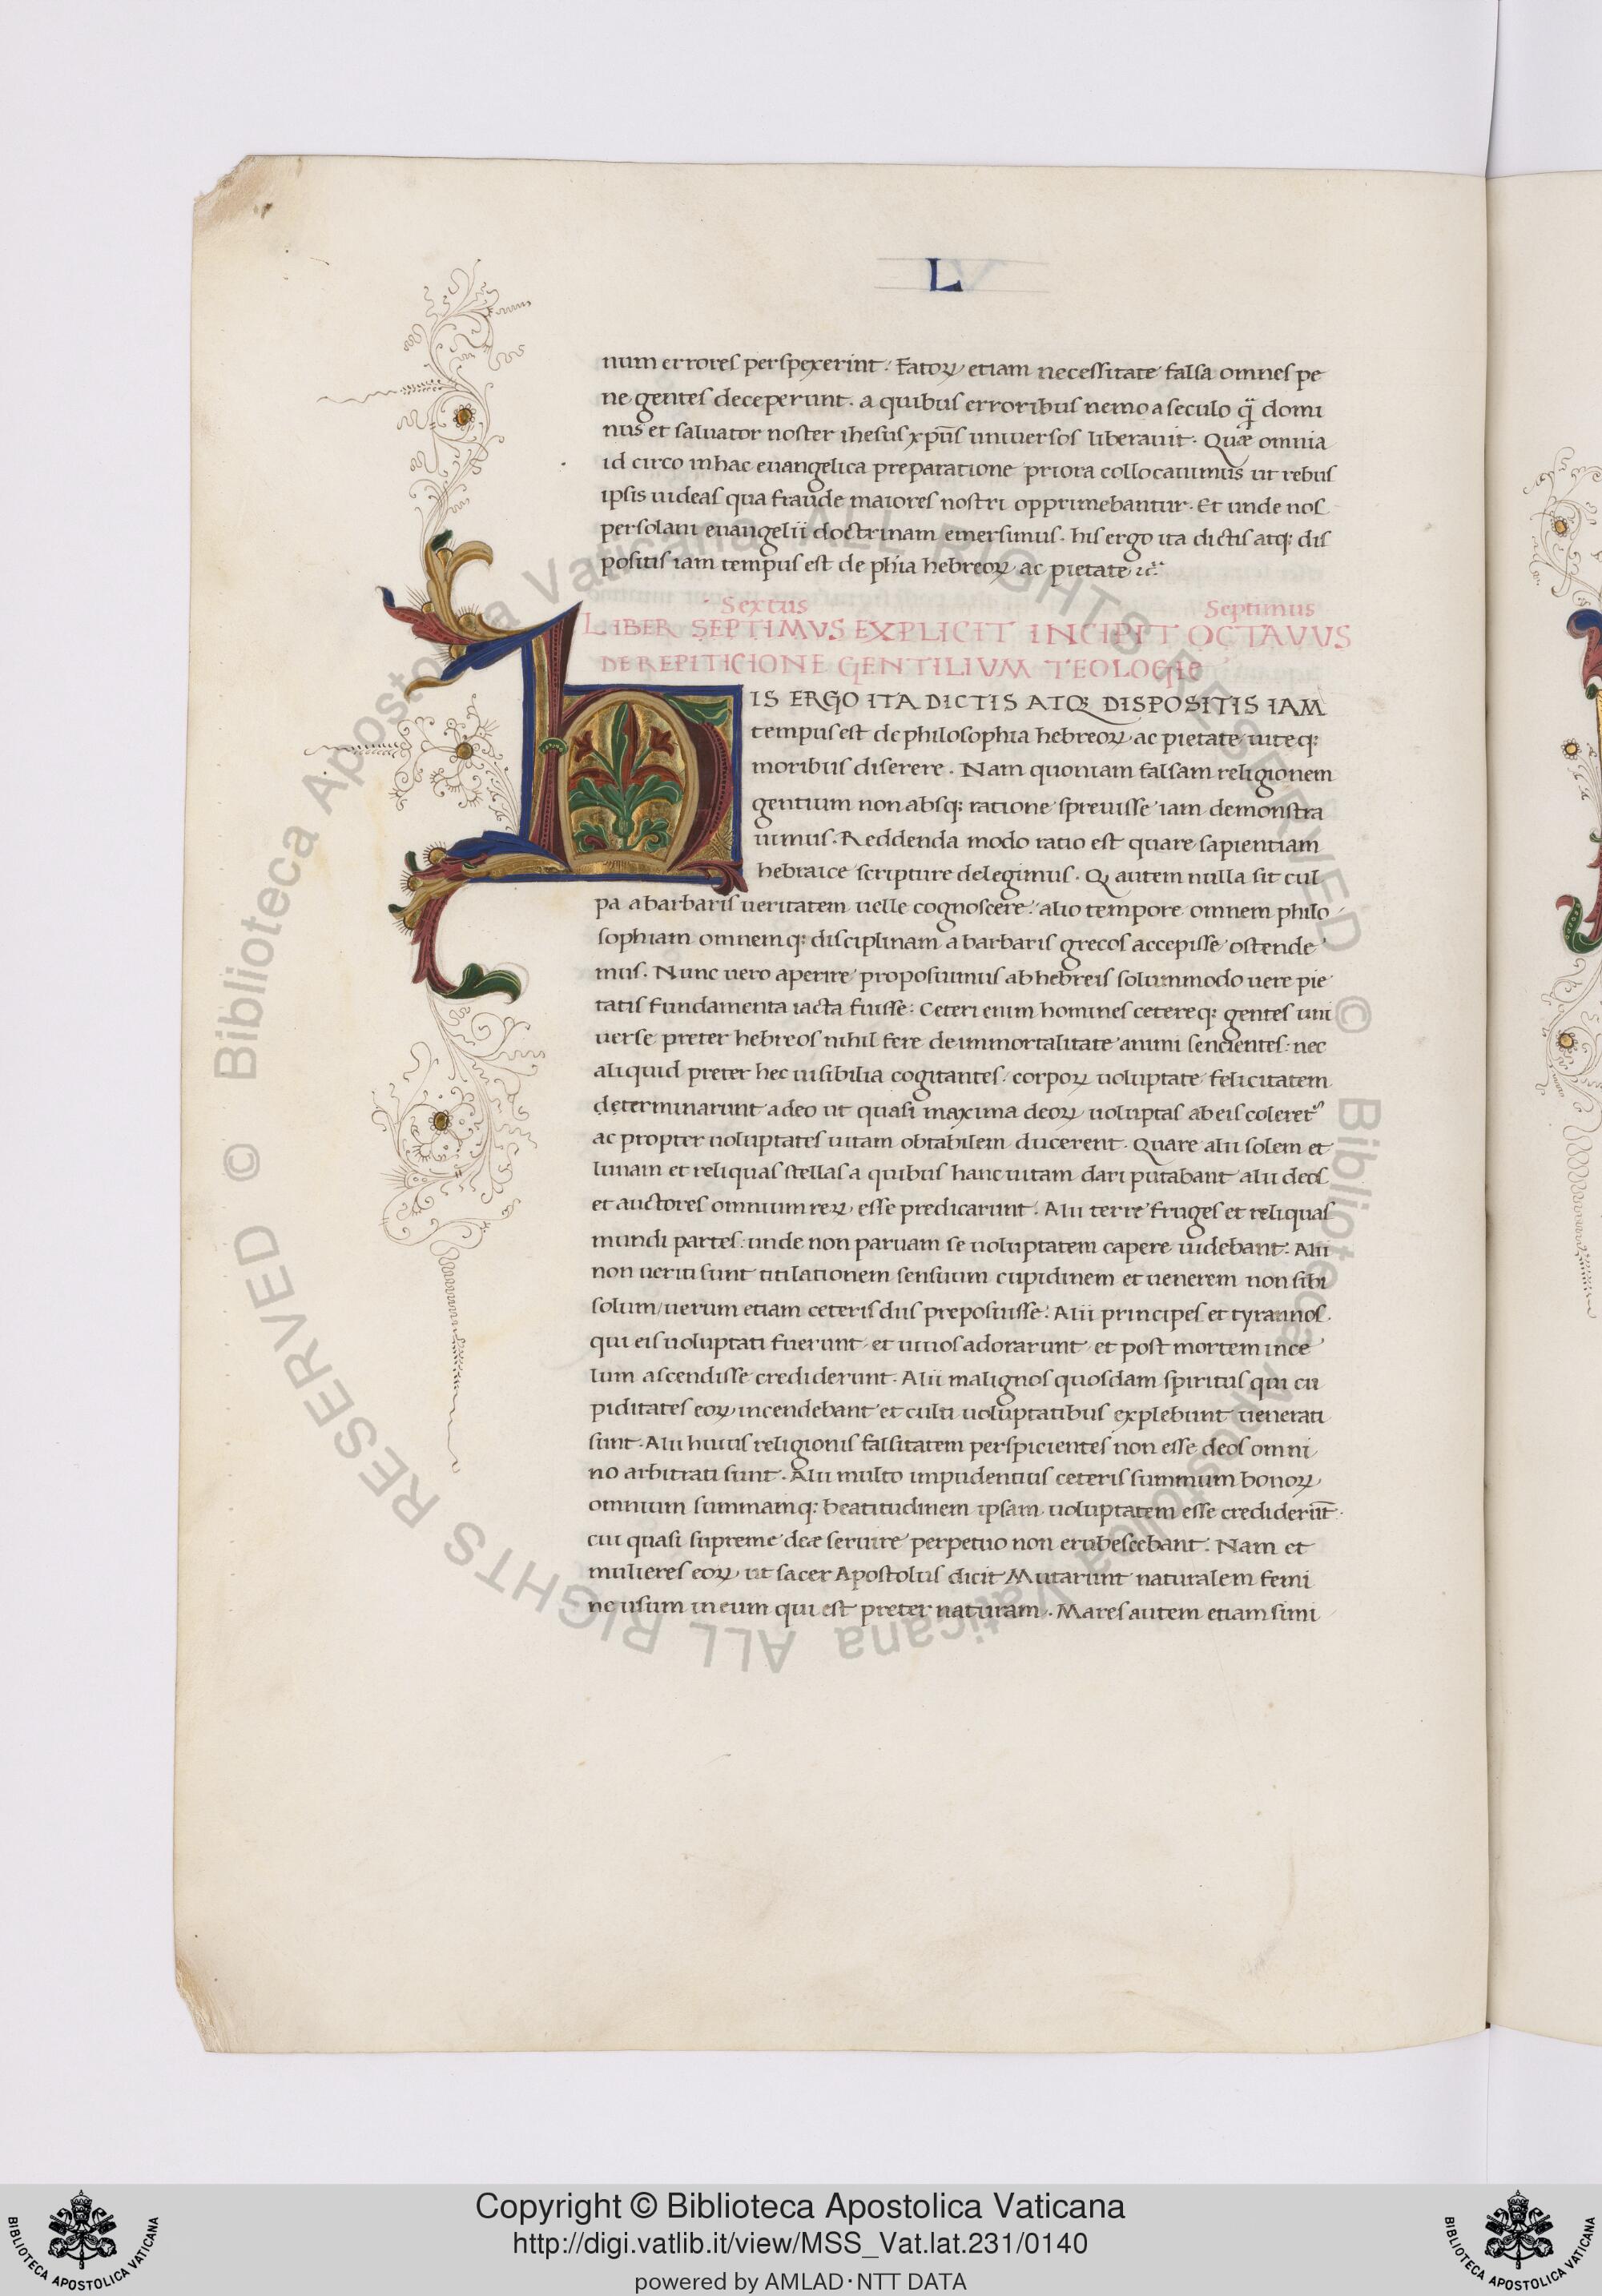 L
num errores perspexerint. Fatoꝝ etiam necessitate falsa omnes pe
ne gentes deceperunt. a quibus erroribus nemo a seculo q̃ domi
nus et saluator noster ihesus xpūs uniuersos liberauit. Quæ omnia
id circo in hac euangelica preparatione priora collocauimus ut rebus
ipsis uideas qua fraude maiores nostri opprimebantur. Et unde nos
per solam euangelii doctrinam emersimus. his ergo ita dictis atq; dis
positis iam tempus est de phia hebreoꝝ ac pietate
Sextus Septimus
LIBER SEPTIMVS EXPLICIT INCIPIT OCTAVUS
DE REPITICIONE GENTILIVM TEOLOGIE
HIS ERGO ITA DICTIS ATQ; DISPOSITIS IAM
tempus est de philosophia hebreoꝝ ac pietate uiteq;
moribus diserere. Nam quoniam falsam religionem
gentium non absq; ratione spreuisse iam demonstra
uimus. Reddenda modo ratio est quare sapientiam
hebraice scripture delegimus. Q autem nulla sit cul
pa a barbaris ueritatem uelle cognoscere: alio tempore omnem philo
sophiam omnemq; disciplinam a barbaris grecos accepisse ostende
mus. Nunc uero aperire proposuimus ab hebreis solummodo uere pie
tatis fundamenta iacta fuisse: Ceteri enim homines cetereq; gentes uni
uerse preter hebreos nihil fere de immortalitate animi sencientes: nec
aliquid preter hec uisibilia cogitantes. corpoꝝ uoluptate felicitatem
determinarunt adeo ut quasi maxima deoꝝ uoluptas ab eis coleret᷑
ac propter uoluptates uitam obtabilem ducerent. Quare alii solem et
lunam et reliquas stellas a quibus hanc uitam dari putabant alii deos
et auctores omnium reꝝ esse predicarunt. Alii terre fruges et reliquas
mundi partes: unde non paruam se uoluptatem capere uidebant: Alii
non ueriti sunt titilationem sensuum cupidinem et uenerem non sibi
solum/uerum etiam ceteris diis preposuisse. Alii principes et tyrannos.
qui eis uoluptati fuerunt et uiuos adorarunt et post mortem in ce
lum ascendisse crediderunt. Alii malignos quosdam spiritus qui cu
piditates eoꝝ incendebant et culti uoluptatibus explebunt uenerati
sunt. Alii huius religionis falsitatem perspicientes non esse deos omni
no arbitrati sunt. Alii multo impudentius ceteris summum bonoꝝ
omnium summamq; beatitudinem ipsam uoluptatem esse crediderūt.
cui quasi supreme deæ seruire perpetuo non erubescebant. Nam et
mulieres eoꝝ ut sacer Apostolus dicit Mutarunt naturalem femi
ne usum in eum qui est preter naturam. Mares autem etiam simi
© Biblioteca Apostolica Vaticana ALL RIGHTS RESERVED © Biblioteca Apostolica Vaticana ALL RIGHTS RESERVED
BIBLIOTECA APOSTOLICA VATICANA
Copyright © Biblioteca Apostolica Vaticana
http://digi.vatlib.it/view/MSS_Vat.lat.231/0140
powered by AMLAD·NTT DATA
BIBLIOTECA APOSTOLICA VATICANA